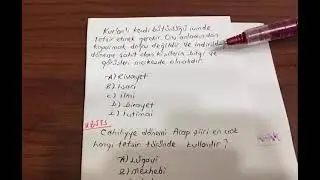 Kur'an'ı kendi bütünlüğü içinde
tefsir etmek gerekir. Onu anlamından
koparmak doğru değildir. Ve indirildiği
döneme şahit olan kimselerin bilgi ve
görüşleri merkezde olmalıdır.
A) Rivayet
B) İşari
C) İlmi
D) Dirayet
E) İçtimai
Cahiliye dönemi Arap şiiri en çok
hangi tefsir türünde kullanılır?
A) Lügavi
B) Mezhebi